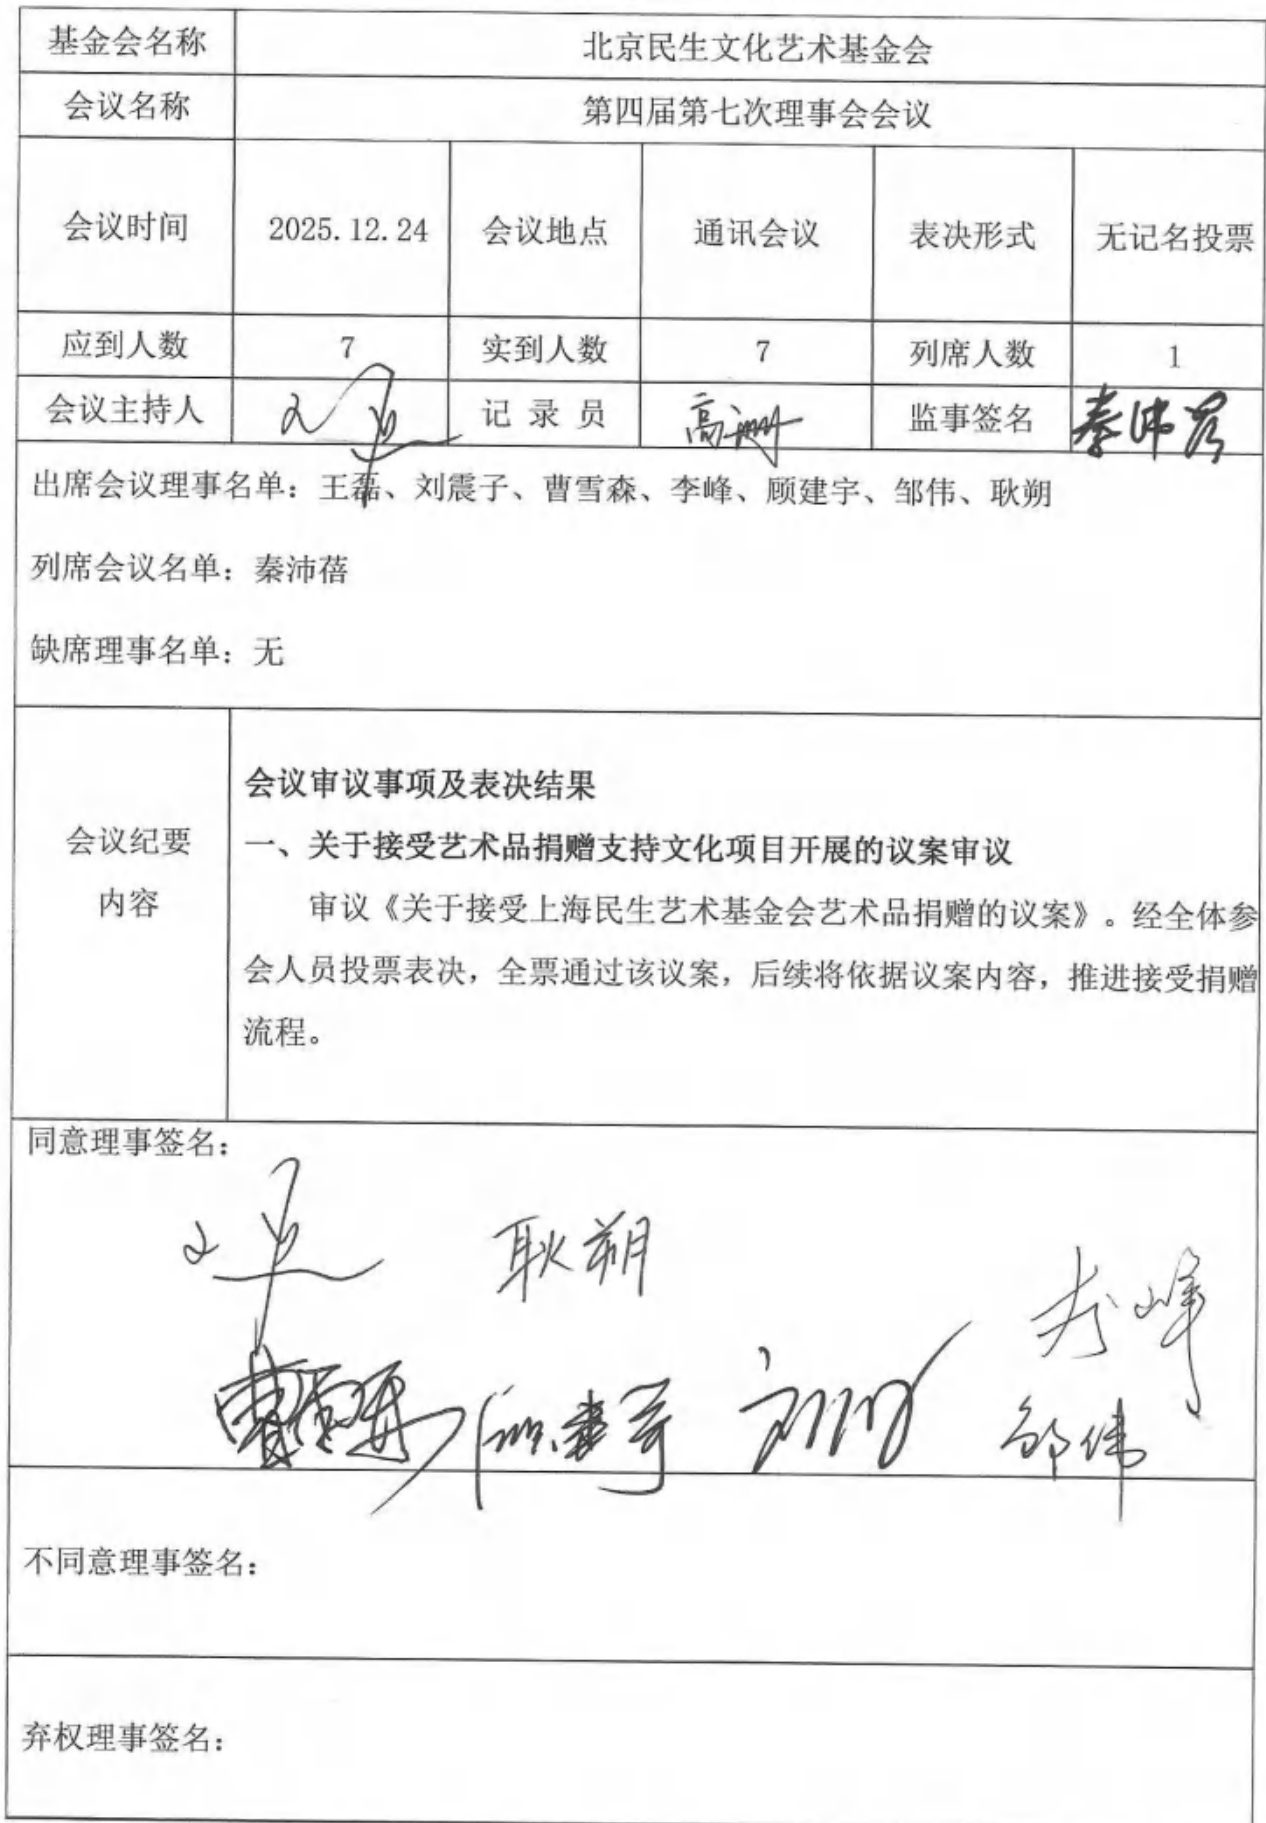 基金会名称 北京民生文化艺术基金会
会议名称 第四届第七次理事会会议
会议时间 2025.12.24 会议地点 通讯会议 表决形式 无记名投票
应到人数 7 实到人数 7 列席人数 1
会议主持人 王磊 记录员 高 监事签名 秦沛蓓
出席会议理事名单：王磊、刘震子、曹雪森、李峰、顾建宇、邹伟、耿朔
列席会议名单：秦沛蓓
缺席理事名单：无
会议纪要
内容
会议审议事项及表决结果
一、关于接受艺术品捐赠支持文化项目开展的议案审议
审议《关于接受上海民生艺术基金会艺术品捐赠的议案》。经全体参
会人员投票表决，全票通过该议案，后续将依据议案内容，推进接受捐赠
流程。
同意理事签名：
王磊 耿朔 李峰
曹雪森 顾建宇 邹伟
不同意理事签名：
弃权理事签名：